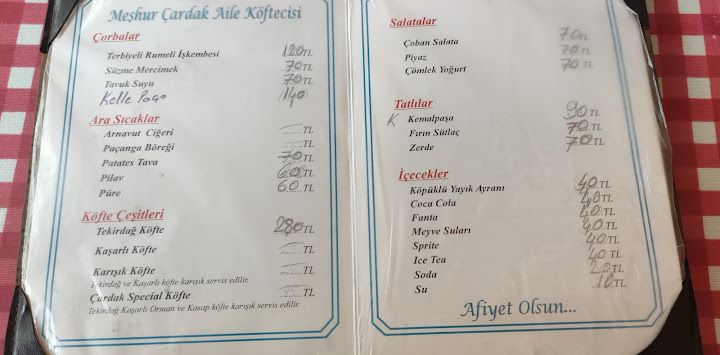 Meşhur Çardak Aile Köftecisi
Çorbalar
Terbiyeli Rumeli İşkembesi 120 TL
Süzme Mercimek 70 TL
Tavuk Suyu 70 TL
Kelle Paça 140
Ara Sıcaklar
Arnavut Ciğeri ........TL
Paçanga Böreği ........TL
Patates Tava 70 TL
Pilav 60 TL
Püre 60 TL
Köfte Çeşitleri
Tekirdağ Köfte 280 TL
Kaşarlı Köfte TL
Karışık Köfte TL
Tekirdağ ve Kaşarlı köfte karışık servis edilir.
Çardak Special Köfte TL
Tekirdağ Kaşarlı Orman ve Kasap köfte karışık servis edilir.
Salatalar
Çoban Salata 70 TL
Piyaz 70 TL
Çömlek Yoğurt 70 TL
Tatlılar
K Kemalpaşa 90 TL
Fırın Sütlaç 70 TL
Zerde 70 TL
İçecekler
Köpüklü Yayık Ayranı 40 TL
Coca Cola 40 TL
Fanta 40 TL
Meyve Suları 40 TL
Sprite 40 TL
Ice Tea 40 TL
Soda 20 TL
Su 10 TL
Afiyet Olsun...